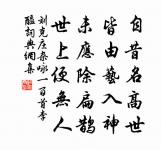 自昔名高世
皆由藝入神
未應除扁鵲
世上便無人
劉克庄雜詠一百首李
醯詞典網集